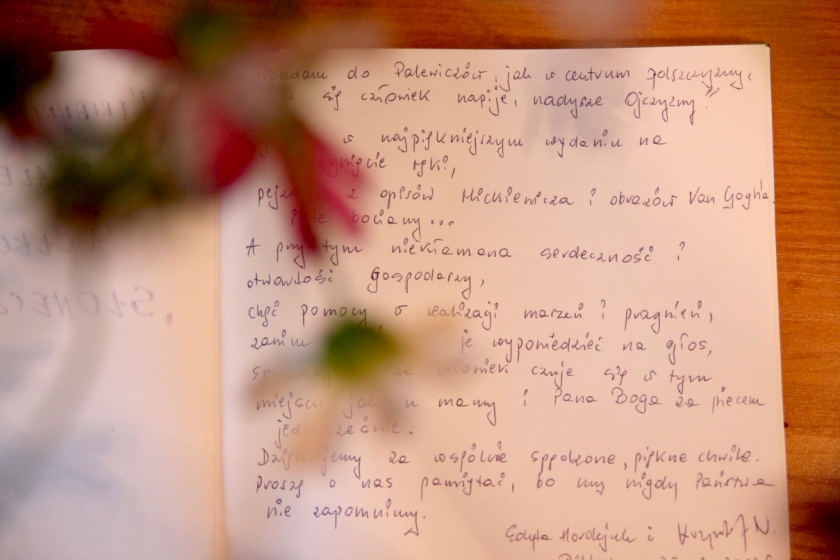 do Palewiczów, jak w centrum polszczyzny,
się człowiek napije, nadysze Ojczyzny."
w najpiękniejszym wydaniu na
ręki,
z opisów Mickiewicza i obrazów Van Gogha
i te bociany...
A przy tym niekłamana serdeczność i
otwartość Gospodarzy,
chęć pomocy w realizacji marzeń i pragnień,
zanim je wypowiedzieć na głos,
że człowiek czuje się w tym
miejscu jak u mamy i Pana Boga za piecem
jednocześnie.
Dziękujemy za wspólnie spędzone, piękne chwile.
Proszę o nas pamiętać, bo my nigdy Państwa
nie zapomnimy.
Edyta i Krzysztof N.
SŁONECZ